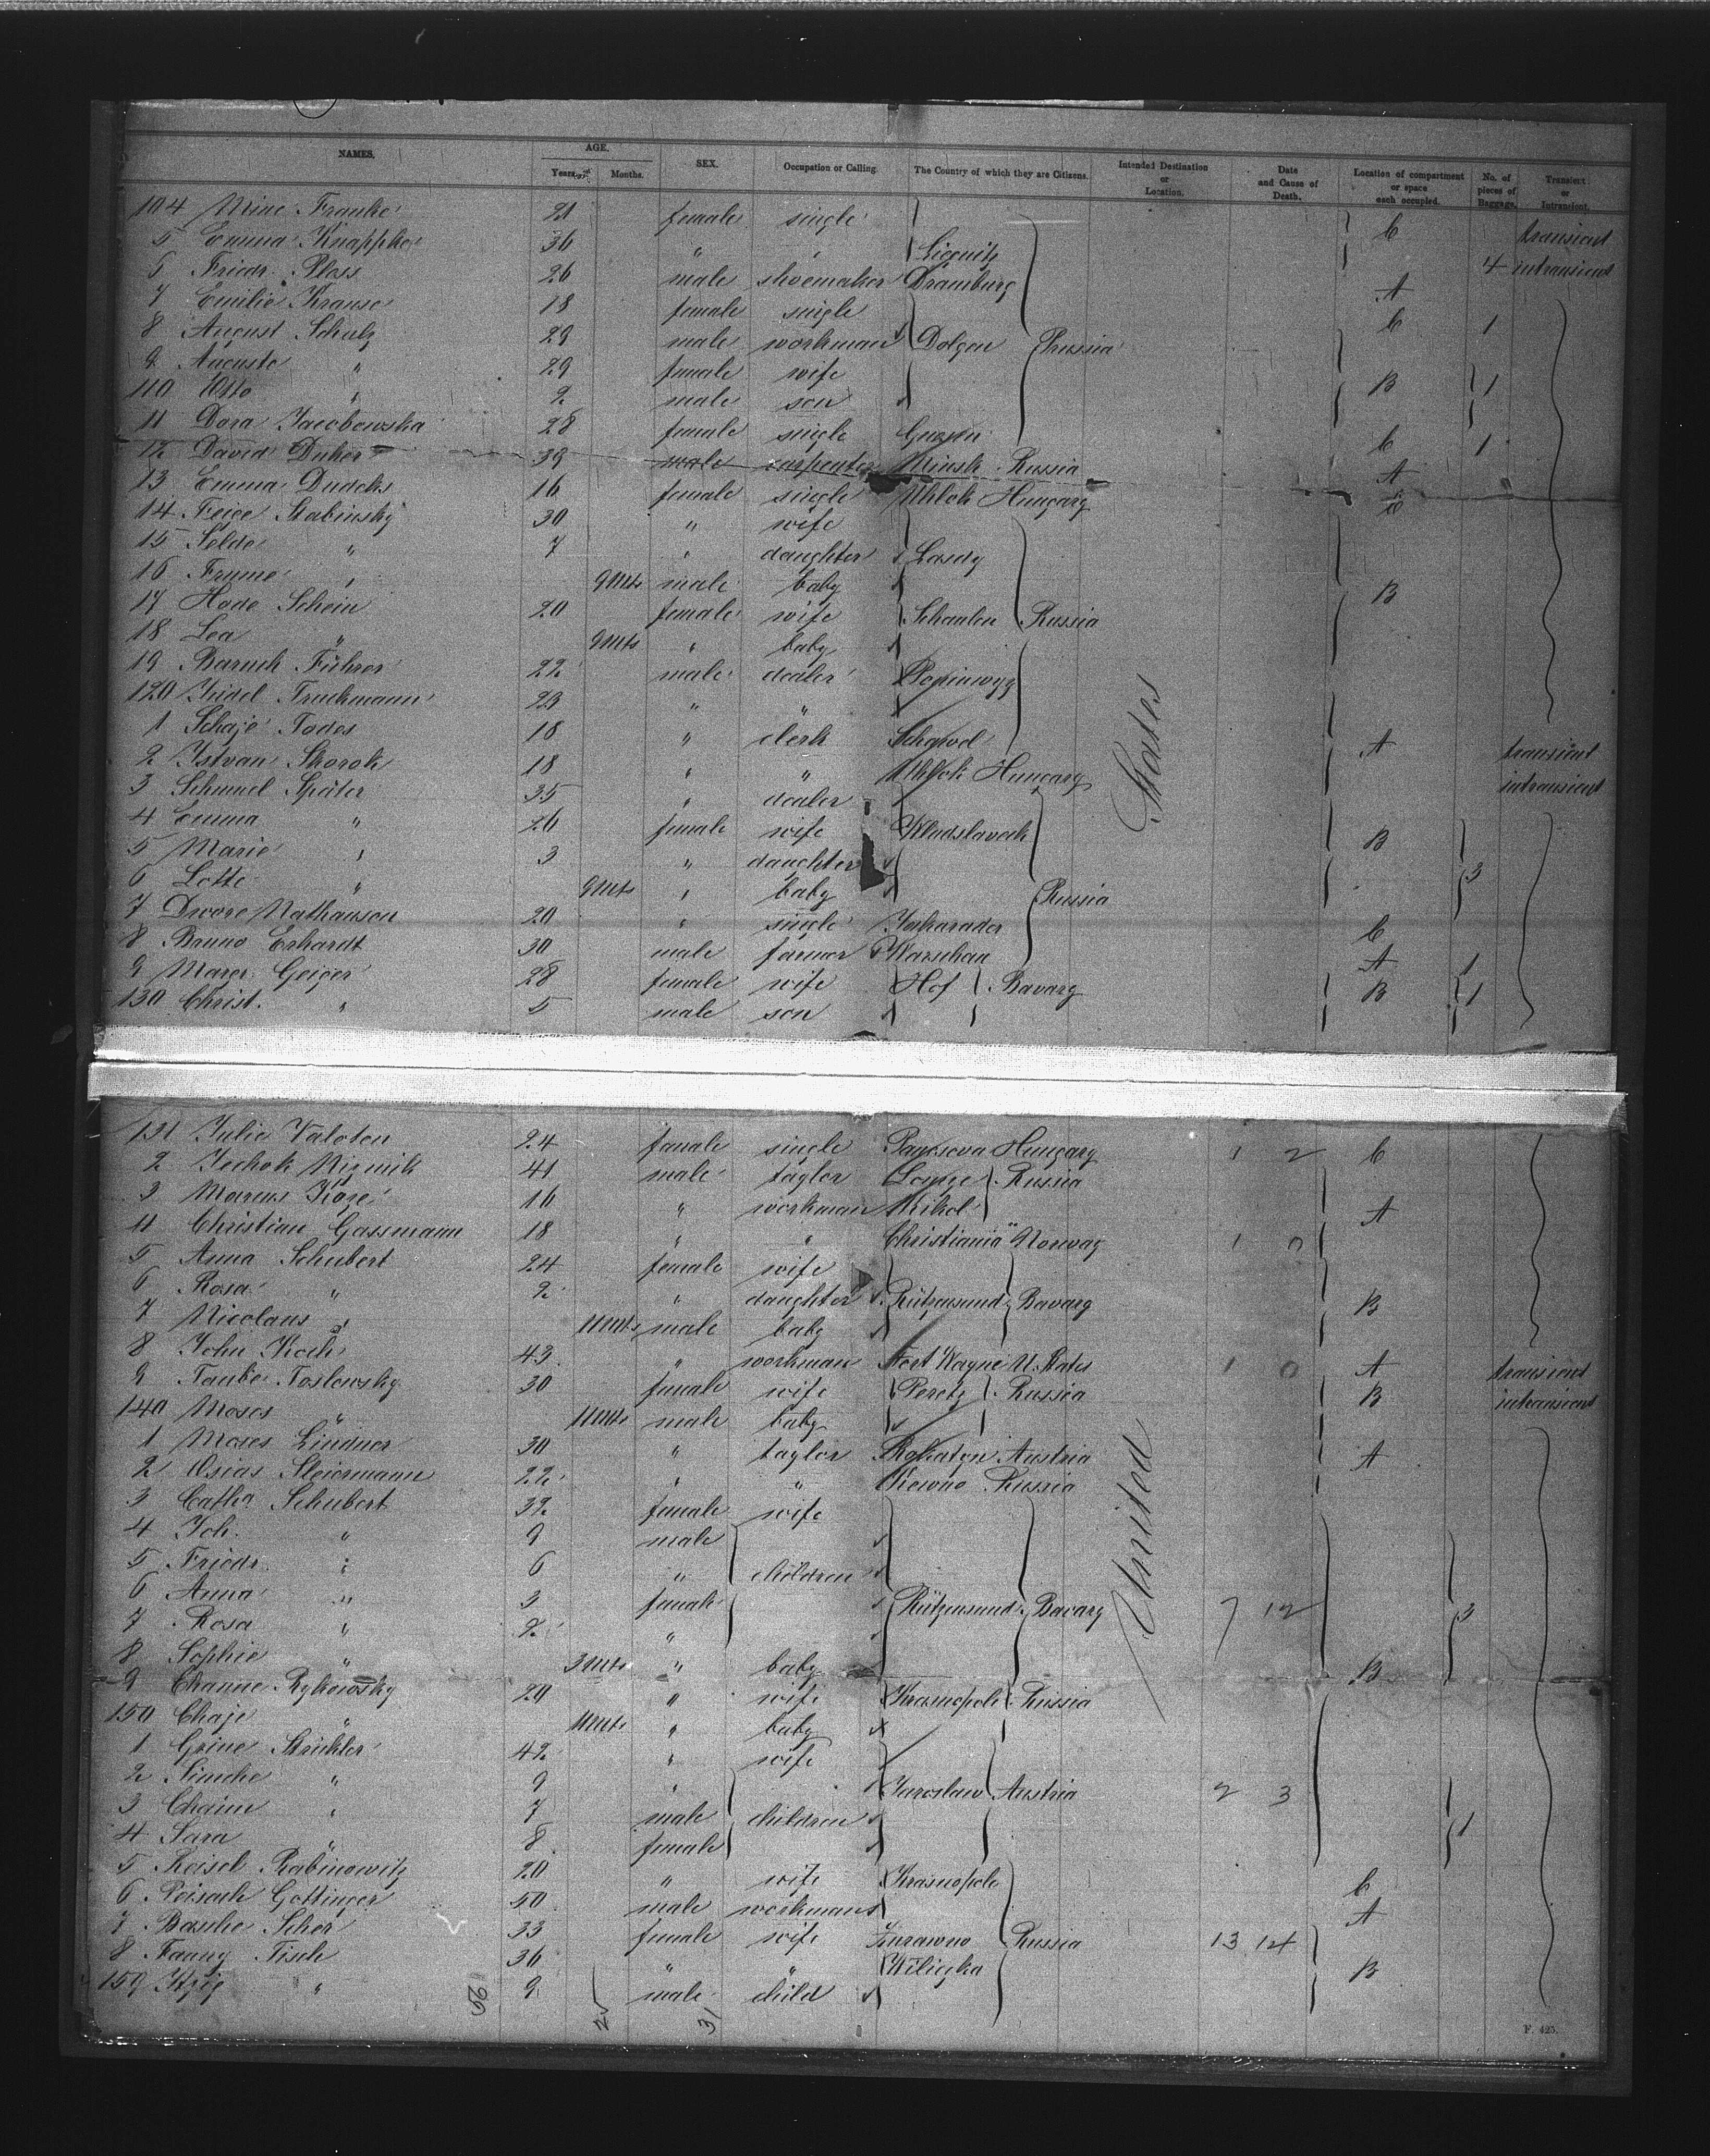 NAMES. AGE. Years. Months. SEX. Occupation or Calling. The Country of which they are Citizens. Intended Destination or Location. Date and Cause of Death. Location of compartment or space each occupied. No. of pieces of Baggage. Transient or Intransient.
104 Mine Franke 21 female single C transient
5 Emma Knappke 36 " " Liegnitz 4 intransient
6 Friedr. Ploss 26 male shoemaker Dramburg A
7 Emilie Krause 18 female single C 1
8 August Schulz 29 male workman Dolgen Prussia
9 Auguste " 29 female wife B 1
110 Otto " 2 male son
11 Dora Jacobowska 28 female single Gnesen C 1
12 David Duker 39 male carpenter Minsk Russia A
13 Emma Dudeks 16 female single Uhlok Hungary C
14 Feige Stabinsky 30 " wife
15 Selde " 7 " daughter Losdy
16 Frume " 9 Mts male baby B
17 Hode Schein 20 female wife Schaulen Russia
18 Lea " 9 Mts " baby
19 Baruch Führer 22 male dealer
120 Judel Fruchmann 23 " "
1 Schaje Todes 18 " clerk Schawel A transient
2 Istvan Skorok 18 " " Uhlok Hungary intransient
3 Schmuel Später 35 " dealer
4 Emma " 26 female wife Wladslawek B
5 Marie " 3 " daughter
6 Lotte " 9 Mts " baby Russia 3
7 Dwore Nathanson 20 " single C
8 Bruno Erhardt 30 male farmer Warschau A 1
9 Margr. Geiger 28 female wife Hof Bavary B 1
130 Christ. " 5 male son
States
131 Julie Valoten 24 female single Pancsova Hungary 1 2 C
2 Jechok Niznik 41 male taylor Russia
3 Marcus Köze 16 " workman Mikol A
4 Christian Gassmann 18 " " Christiania Norway 1 0
5 Anna Schubert 24 female wife
6 Rosa " 2 " daughter Rützensund Bavary B
7 Nicolaus " 11 Mts male baby
8 John Koch 43 " workman Fort Wayne U. States 1 0 A transient
9 Taube Toslowsky 30 female wife Peretz Russia B intransient
140 Moses " 11 Mts male baby
1 Moses Lindner 30 " taylor Rohatyn Austria A
2 Osias Steiermann 22 " " Kowno Russia
3 Cath. Schubert 32 female wife
4 Joh. " 9 male
5 Friedr. " 6 " children
6 Anna " 3 female Rützensund Bavary 7 12 3
7 Rosa " 2 "
8 Sophie " 3 Mts " baby B
9 Channe Rykowsky 20 " wife Krasnopole Russia
150 Chaje " 11 Mts " baby
1 Grine Strickler 42 " wife
2 Simche " 9 " Jaroslaw Austria 2 3
3 Chaim " 7 male children
4 Sara " 8 female 1
5 Reisel Rabinowitz 20 " wife Krasnopole C
6 Peisach Gottinger 50 male workman A
7 Basche Schor 33 female wife Zurawno Russia 13 14
8 Fanny Fisch 36 " " Wiliczka B
159 Itzig " 9 male child
United
56 25 31
F. 425.